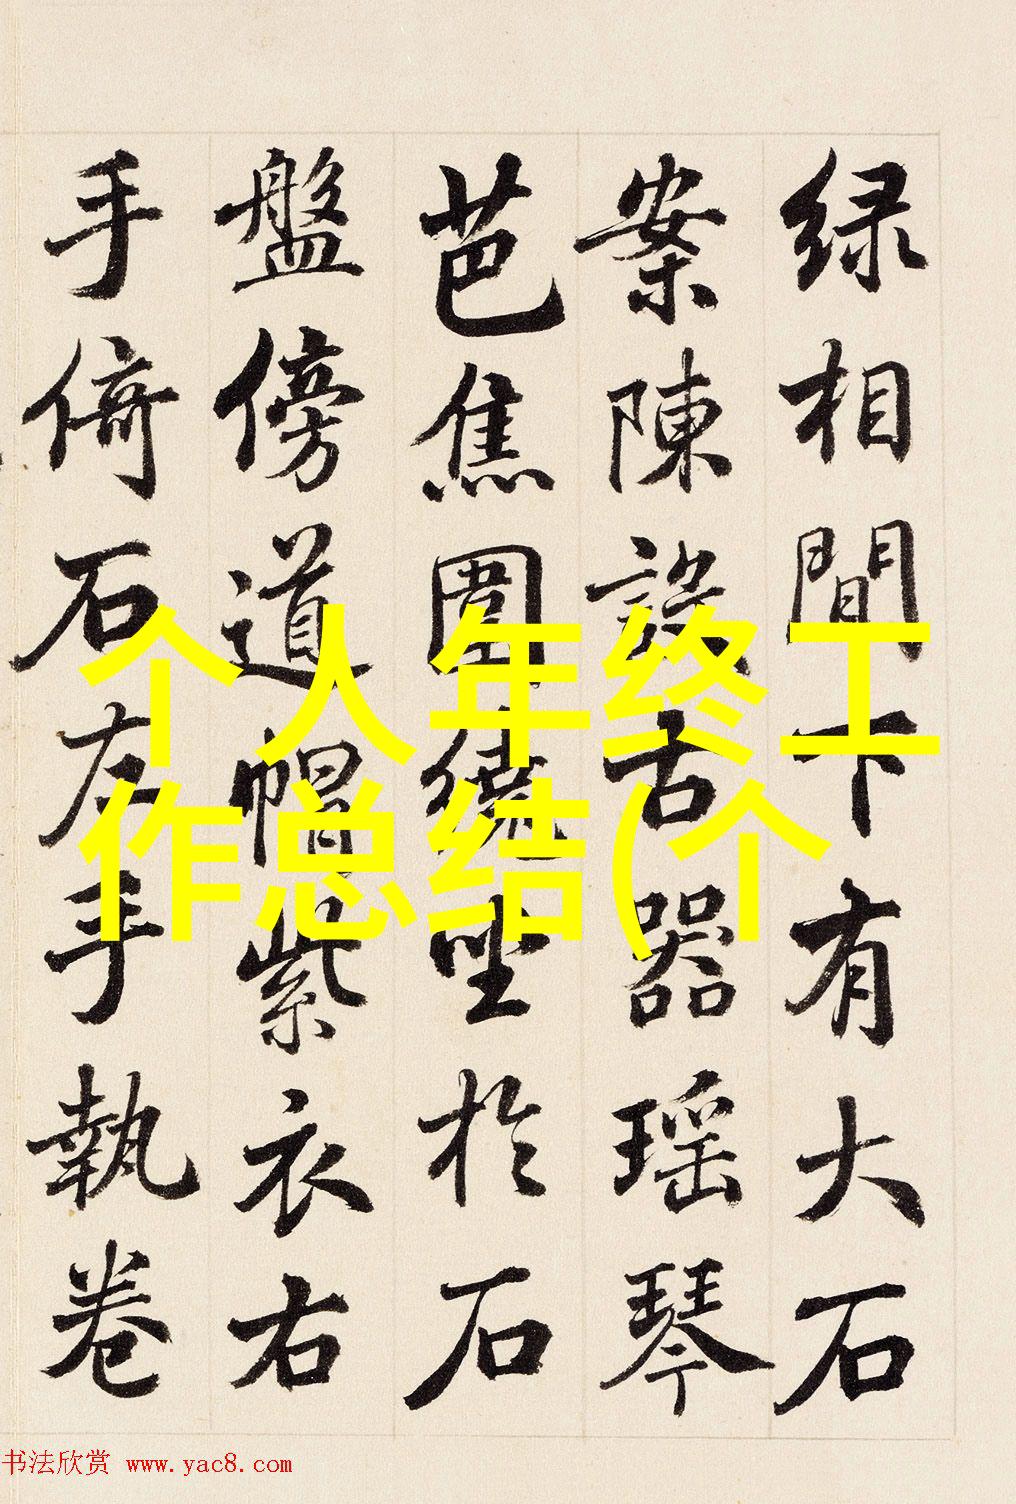 绿相間下有大石
案陳設古器瑶琴
芭焦圍繞坐於石
盤傍道帽紫衣右
手倚石左手執卷
个人年终工
作总结(个
书法欣赏 www.yac8.com